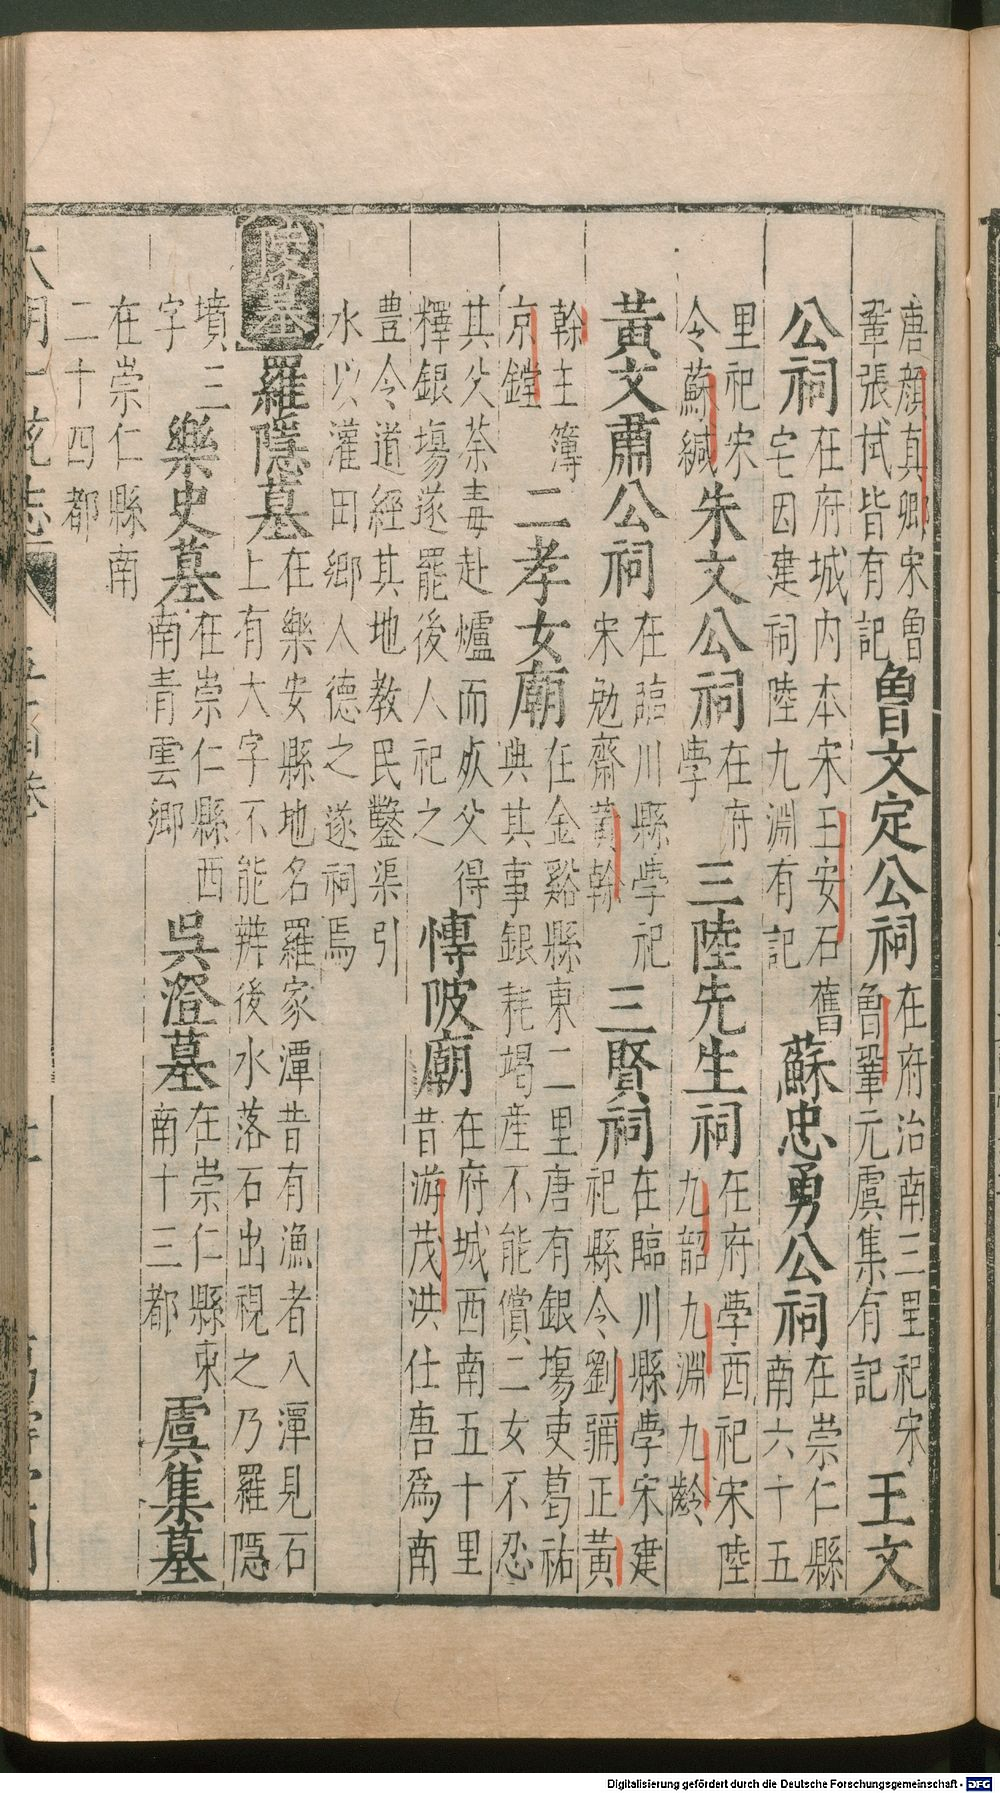 唐顔真卿宋魯
鞏張栻皆有記
魯文定公祠
在府治南三里祀宋
魯鞏元虞集有記
王文
公祠
在府城内本宋王安石舊
宅因建祠陸九淵有記
蘇忠勇公祠
在崇仁縣
南六十五
里祀宋
令蘇緘
朱文公祠
在府
學
三陸先生祠
在府學西祀宋陸
九韶九淵九齡
黃文肅公祠
在臨川縣學祀
宋勉齋黃榦
三賢祠
在臨川縣學宋建
祀縣令劉彌正黃
榦主簿
京鏜
二孝女廟
在金谿縣東二里唐有銀場吏葛祐
典其事銀耗竭產不能償二女不忍
其父荼毒赴爐而死父得
釋銀場遂罷後人祀之
慱陂廟
在府城西南五十里
昔游茂洪仕唐爲南
豊令道經其地教民鑿渠引
水以灌田鄉人德之遂祠焉
陵墓
羅隱墓
在樂安縣地名羅家潭昔有漁者入潭見石
上有大字不能辨後水落石出視之乃羅隱
墳三
字
樂史墓
在崇仁縣西
南青雲鄉
吳澄墓
在崇仁縣東
南十三都
虞集墓
在崇仁縣南
二十四都